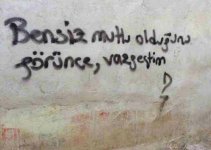 Bensiz mutlu olduğunu
görünce, vazgeçtim